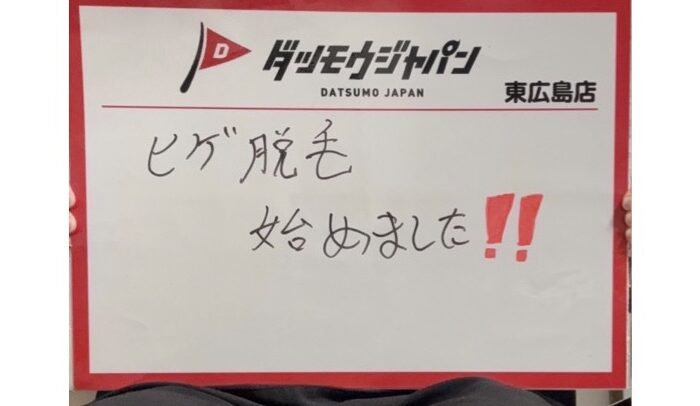 D ダツモウジャパン
DATSUMO JAPAN
東広島店
ヒゲ脱毛
始めました!!